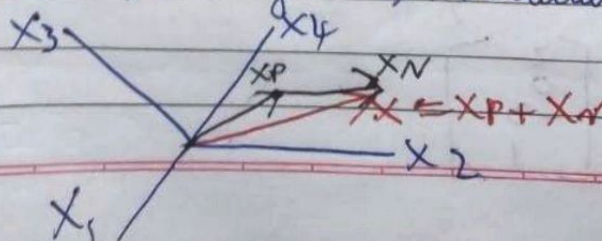 X3
X4
XP
XN
X = XP + XN
X2
X1